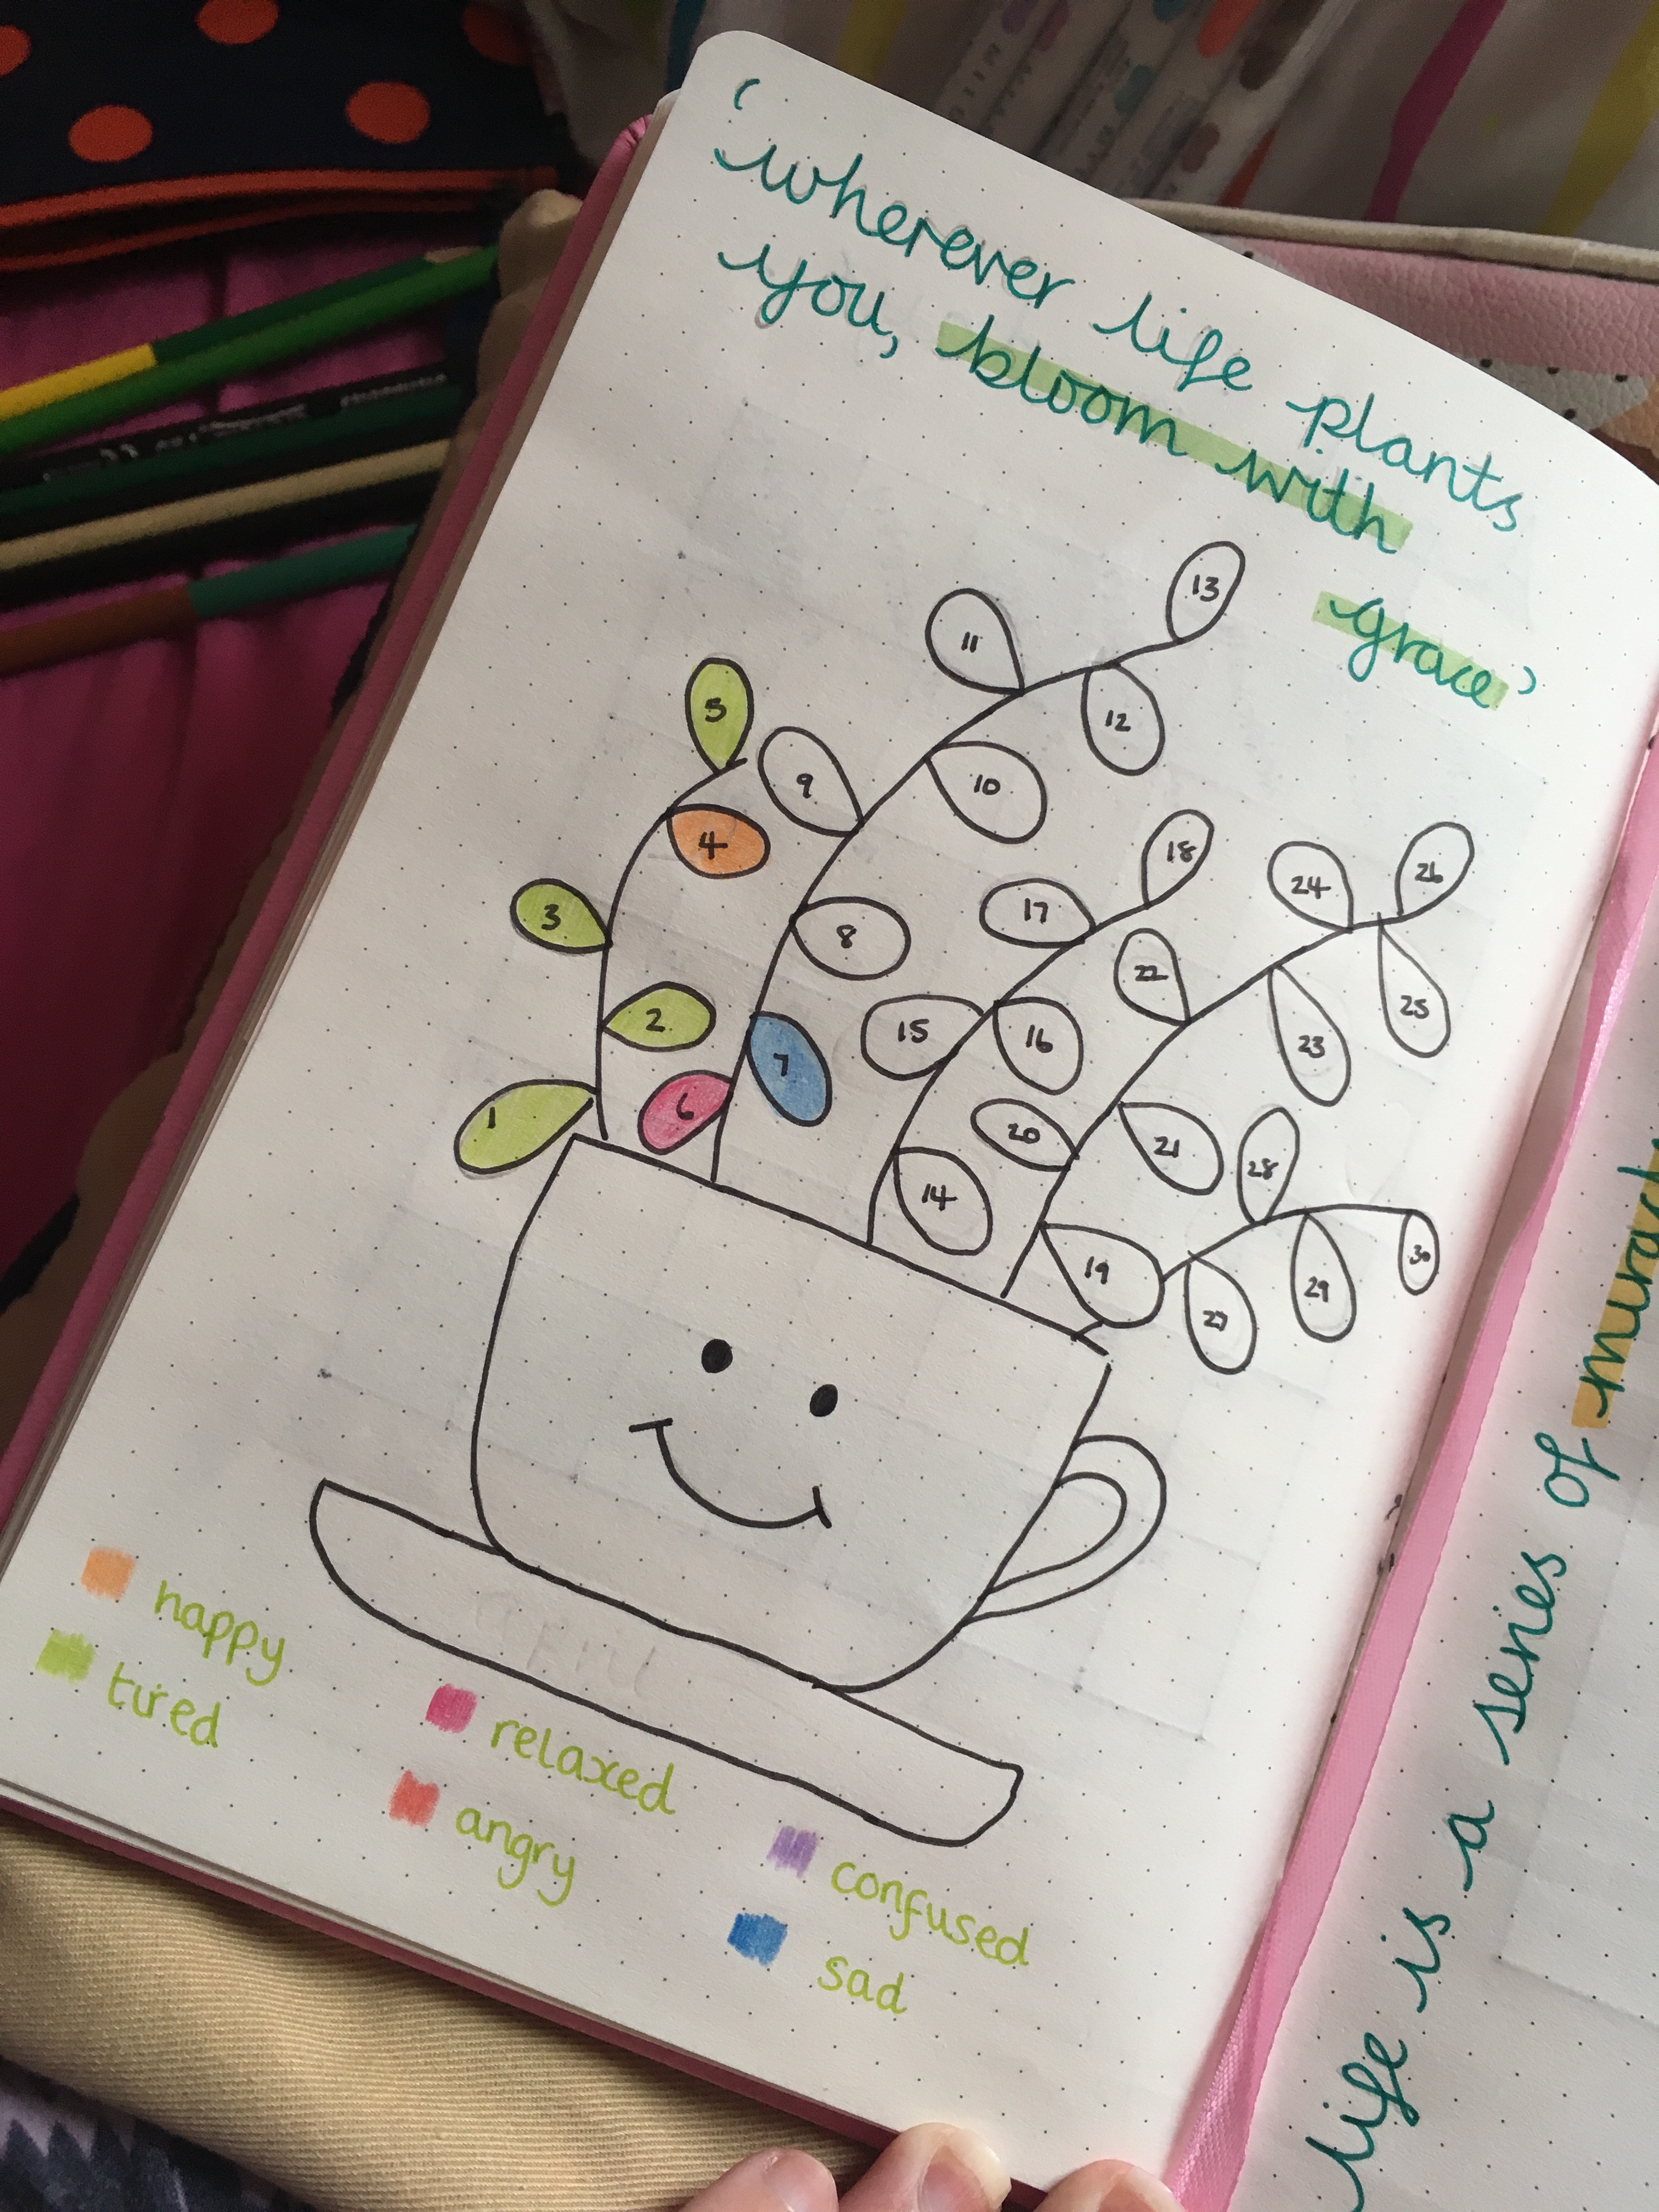 'wherever life plants
you, bloom with
grace'
13
11
12
5
9
10
4
18
24
26
3
17
8
22
25
2
15
16
23
7
6
1
20
21
28
14
19
30
29
27
happy
tired
relaxed
angry
confused
sad
life is a series of